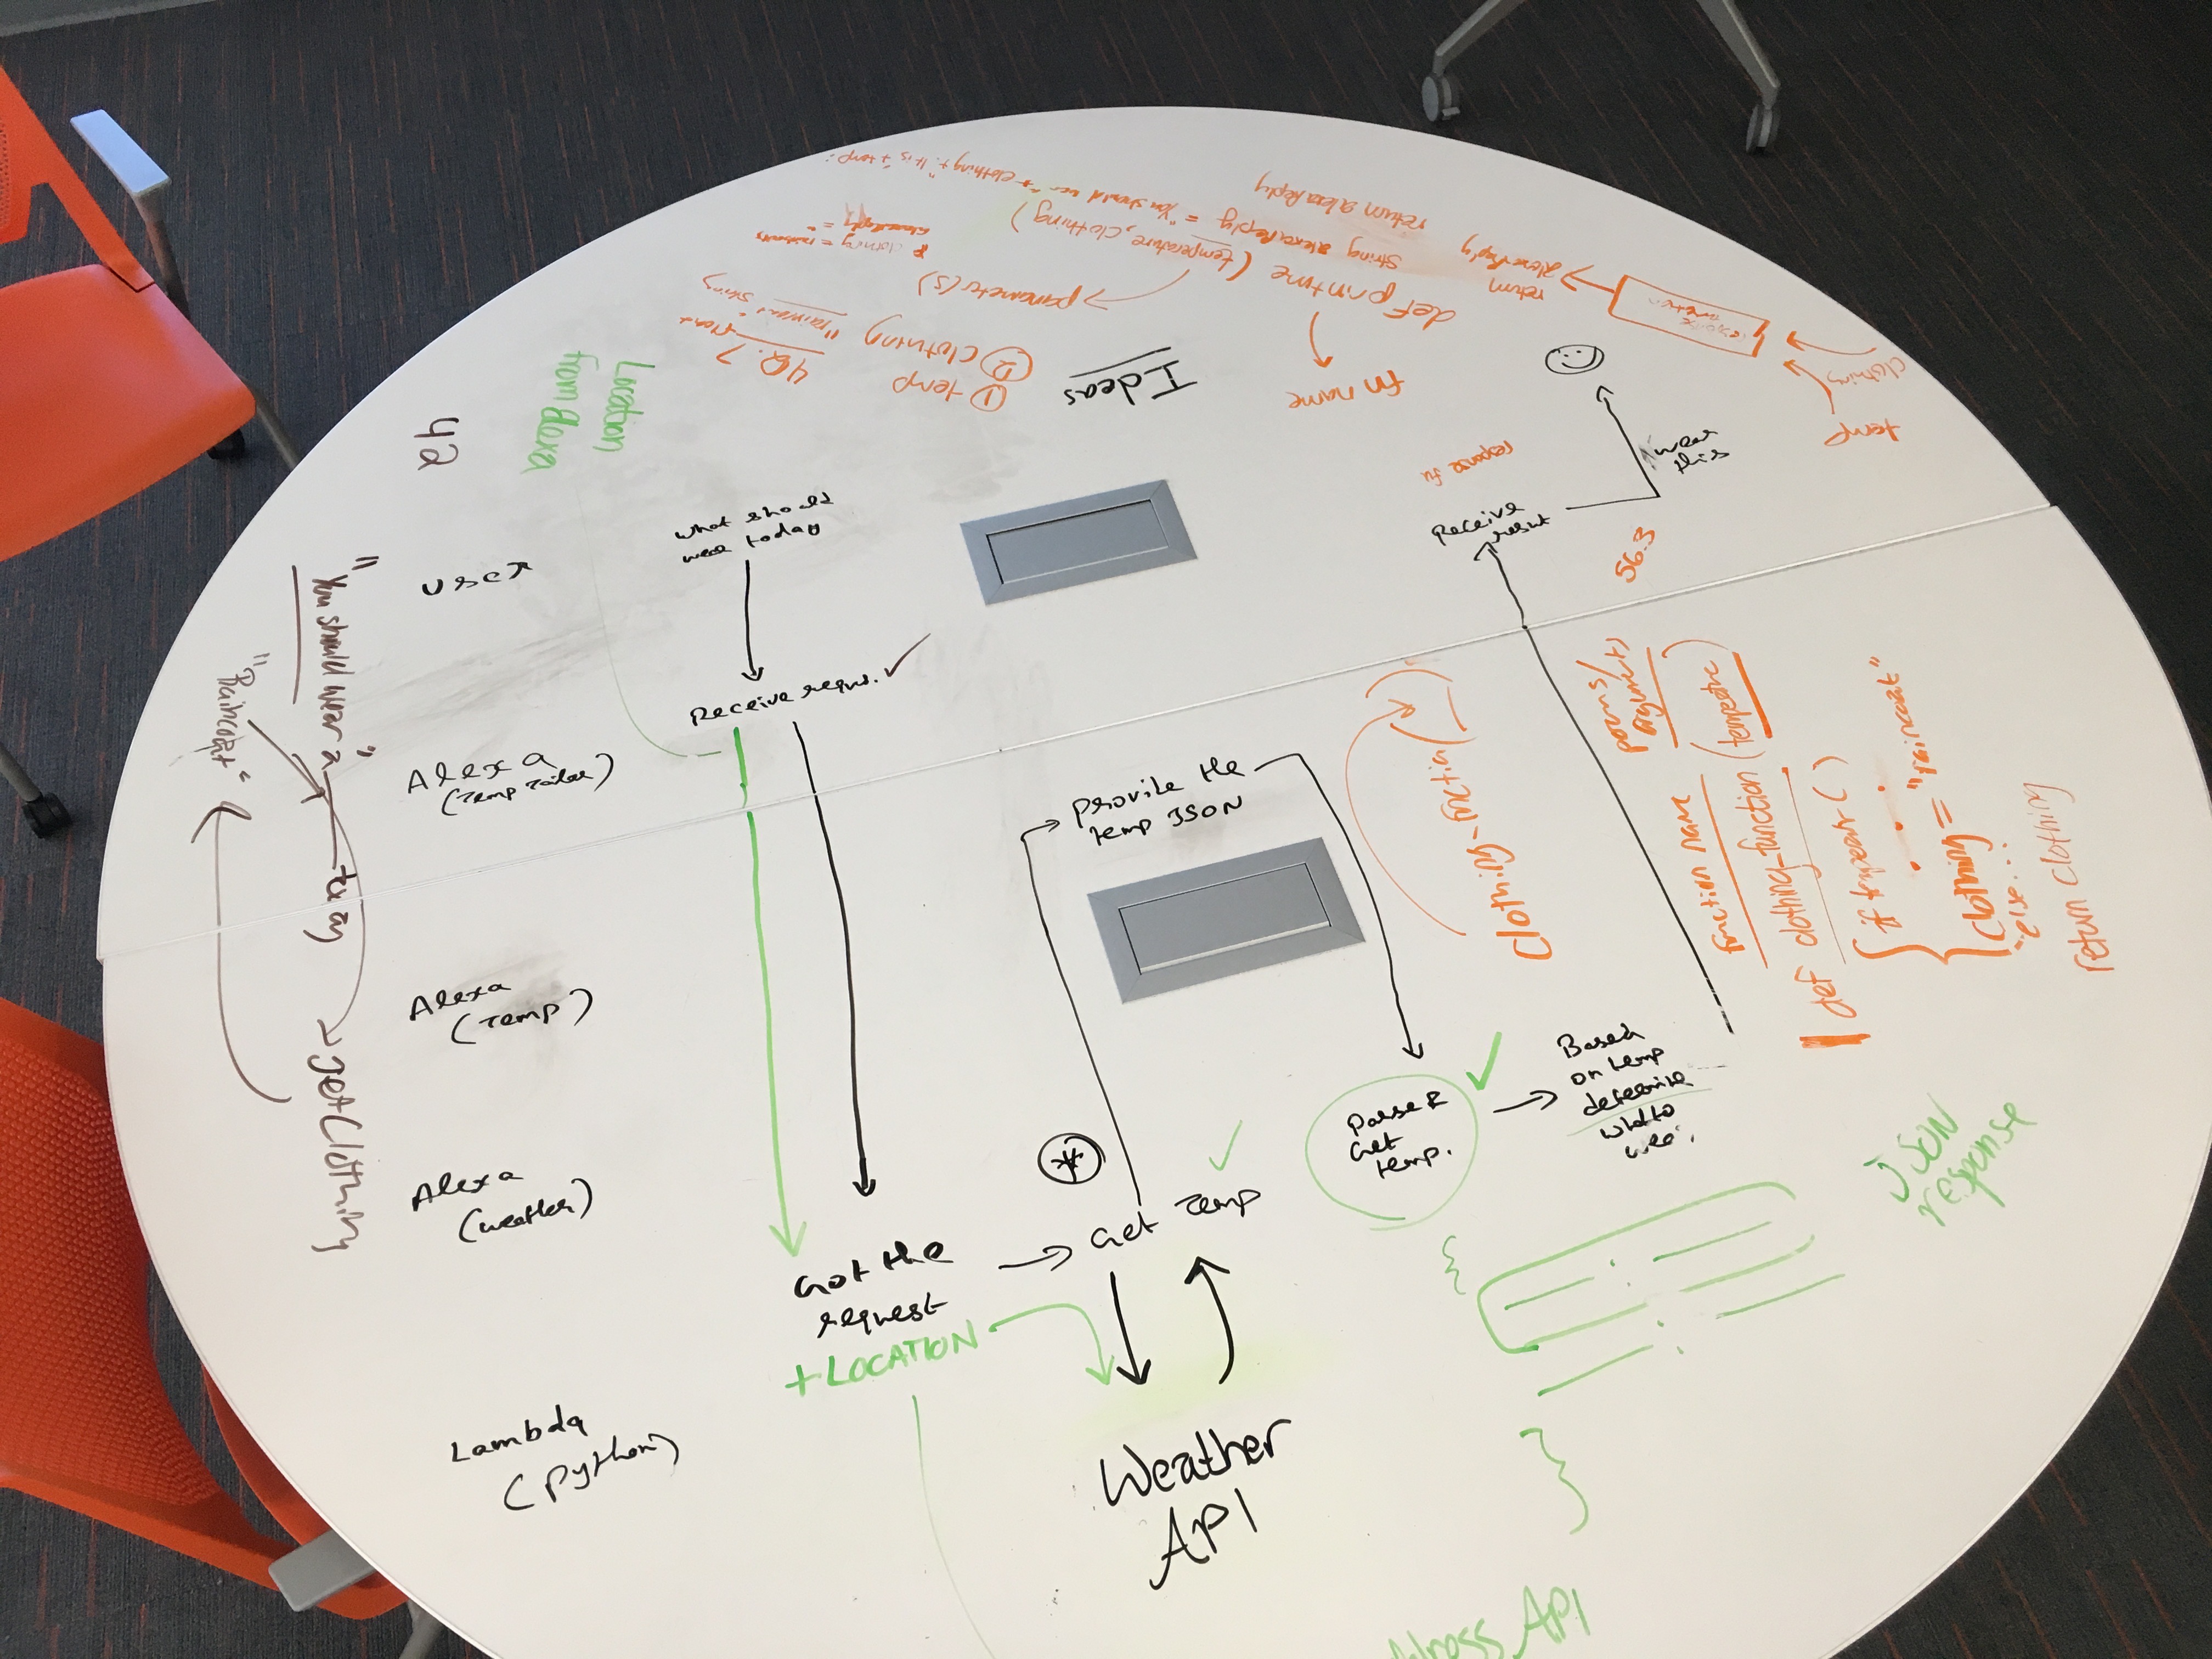 Ideas
① temp
② clothing
48.7 float
"raincoat" string
parameter(s)
def printme (temperature, clothing)
fn name
return alexaReply
return
alexaReply
clothing
temp
Location
from Alexa
42
user
what should
wear today
Receive requs. ✓
Alexa
Alexa
(Temp)
Alexa
(weather)
Lambda
(python)
"You should wear a"
today
"Raincoat"
getClothing
Got the
request
+ LOCATION
Get Temp
Weather
API
provide the
temp JSON
Parse &
Get
temp.
Based
on temp
determine
what to
Receive
wear
this
56.3
response fn
clothing-function
function name
params/
argument
def clothing-function (temperature)
if temperature ( )
{ clothing = "raincoat"
else...
return clothing
JSON
response
API